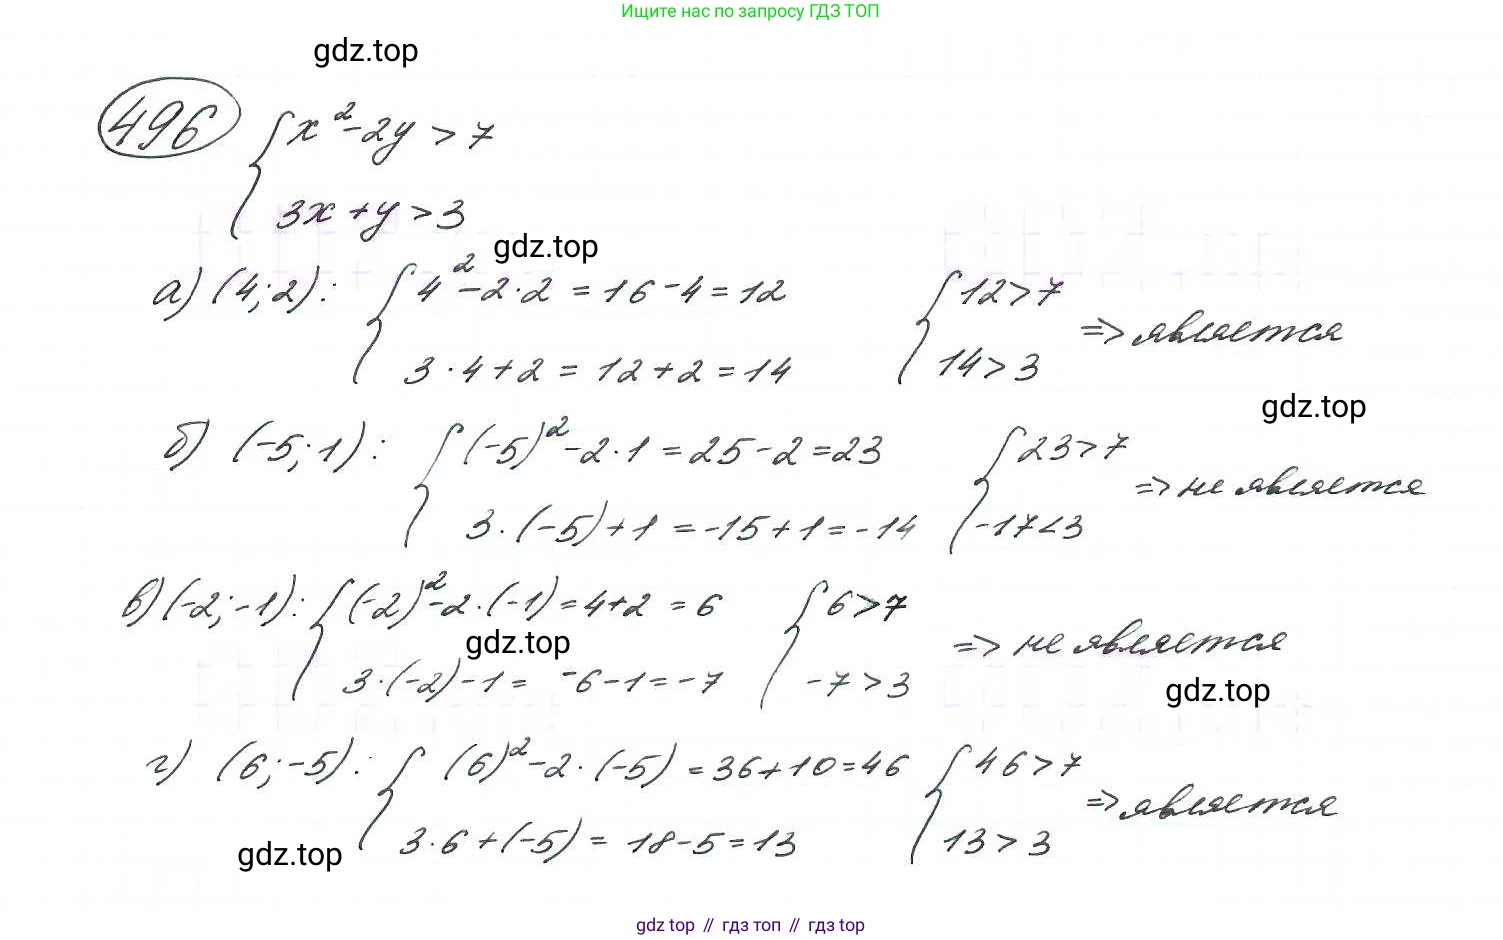 Ищите нас по запросу ГДЗ ТОП
gdz.top
496 { x² - 2y > 7
3x + y > 3
gdz.top
а) (4; 2): { 4² - 2·2 = 16 - 4 = 12 { 12 > 7
3·4 + 2 = 12 + 2 = 14 14 > 3 => является
gdz.top
б) (-5; 1): { (-5)² - 2·1 = 25 - 2 = 23 { 23 > 7
3·(-5) + 1 = -15 + 1 = -14 -17 < 3 => не является
в) (-2; -1): { (-2)² - 2·(-1) = 4 + 2 = 6 { 6 > 7
gdz.top
3·(-2) - 1 = -6 - 1 = -7 -7 > 3 => не является
gdz.top
г) (6; -5): { (6)² - 2·(-5) = 36 + 10 = 46 { 46 > 7
3·6 + (-5) = 18 - 5 = 13 13 > 3 => является
gdz.top
gdz top // гдз топ // гдз top